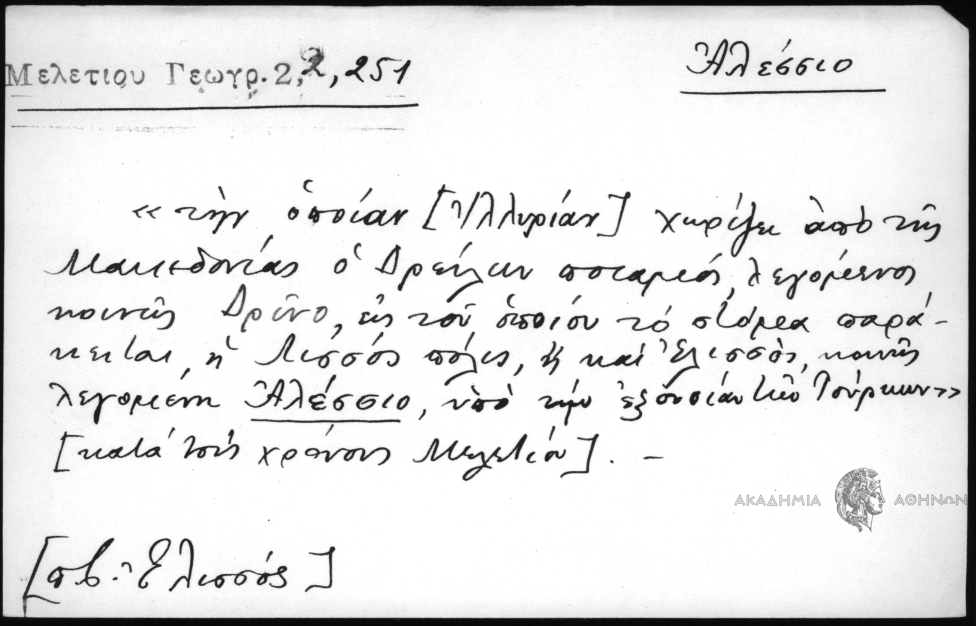 Μελετίου Γεωγρ. 2,2, 251
Ἀλέσσιο
«τὴν ὁποίαν [Ἰλλυρίαν] χωρίζει ἀπὸ τῆς
Μακεδονίας ὁ Δρείλων ποταμός, λεγόμενος
κοινῶς Δρῖνο, εἰς τοῦ ὁποίου τὸ στόμα παρά-
κειται, ἡ Λισσός πόλις, ἢ καὶ Ἐλισσὸς, κοινῶς
λεγομένη Ἀλέσσιο, ὑπὸ τὴν ἐξουσίαν τῶν Τούρκων»
[κατὰ τοὺς χρόνους Μελετίου]. –
ΑΚΑΔΗΜΙΑ ΑΘΗΝΩΝ
[πβ. Ἐλισσός]